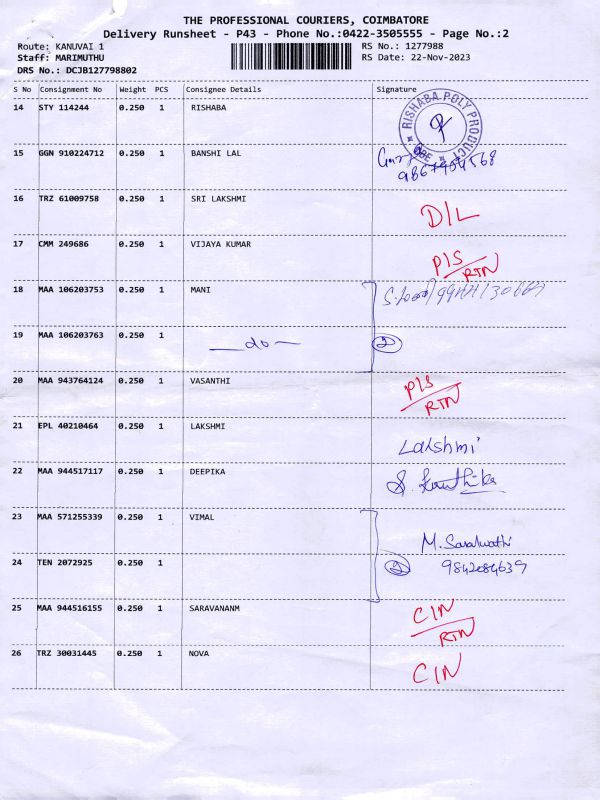 THE PROFESSIONAL COURIERS, COIMBATORE
Delivery Runsheet - P43 - Phone No.:0422-3505555 - Page No.:2
Route: KANUVAI 1 RS No.: 1277988
Staff: MARIMUTHU RS Date: 22-Nov-2023
DRS No.: DCJB127798802
S No Consignment No Weight PCS Consignee Details Signature
14 STY 114244 0.250 1 RISHABA
RISHABA POLY PRODUCT
15 GGN 910224712 0.250 1 BANSHI LAL
16 TRZ 61009758 0.250 1 SRI LAKSHMI D/L
17 CMM 249686 0.250 1 VIJAYA KUMAR P/S
RTN
18 MAA 106203753 0.250 1 MANI
19 MAA 106203763 0.250 1 — do — 2
20 MAA 943764124 0.250 1 VASANTHI P/S
RTN
21 EPL 40210464 0.250 1 LAKSHMI Lakshmi
22 MAA 944517117 0.250 1 DEEPIKA
23 MAA 571255339 0.250 1 VIMAL M. Saralwathi
24 TEN 2072925 0.250 1 2 9842084639
25 MAA 944516155 0.250 1 SARAVANANM C/N
RTN
26 TRZ 30031445 0.250 1 NOVA C/N